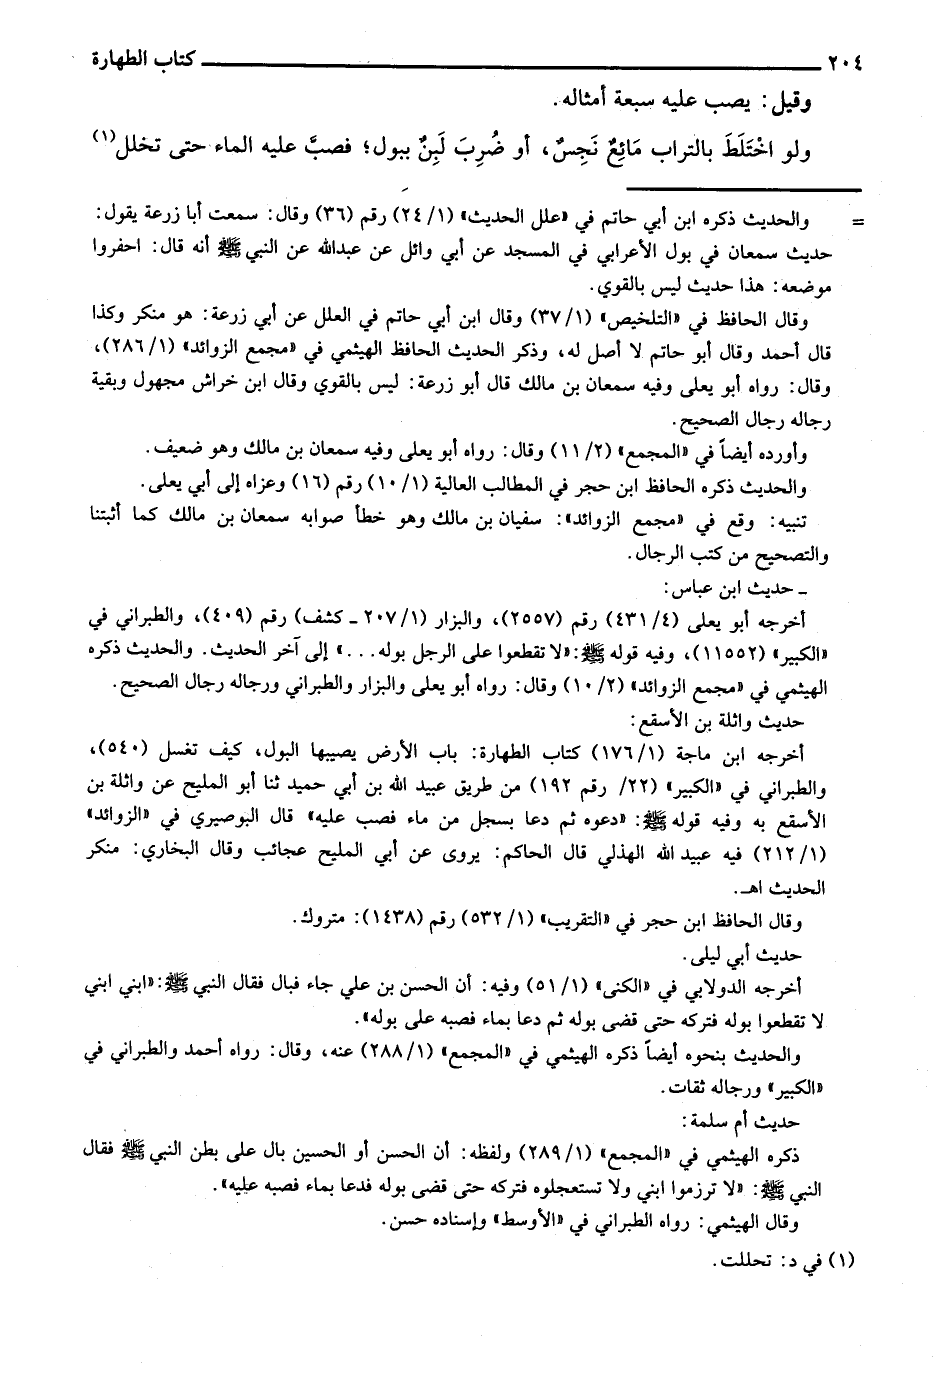 ٢٠٤ كتاب الطهارة
وقيل: يصب عليه سبعة أمثاله.
ولو اخْتَلَطَ بالتراب مَائِعٌ نَجِسٌ، أو ضُرِبَ لَبِنٌ ببول؛ فصبَّ عليه الماء حتى تخلل(١)
= والحديث ذكره ابن أبي حاتم في «علل الحديث» (١/ ٢٤) رقم (٣٦) وقال: سمعت أبا زرعة يقول:
حديث سمعان في بول الأعرابي في المسجد عن أبي وائل عن عبدالله عن النبي ﷺ أنه قال: احفروا
موضعه: هذا حديث ليس بالقوي.
وقال الحافظ في «التلخيص» (١/ ٣٧) وقال ابن أبي حاتم في العلل عن أبي زرعة: هو منكر وكذا
قال أحمد وقال أبو حاتم لا أصل له، وذكر الحديث الحافظ الهيثمي في «مجمع الزوائد» (١/ ٢٨٦)،
وقال: رواه أبو يعلى وفيه سمعان بن مالك قال أبو زرعة: ليس بالقوي وقال ابن خراش مجهول وبقية
رجاله رجال الصحيح.
وأورده أيضاً في «المجمع» (٢/ ١١) وقال: رواه أبو يعلى وفيه سمعان بن مالك وهو ضعيف.
والحديث ذكره الحافظ ابن حجر في المطالب العالية (١/ ١٠) رقم (١٦) وعزاه إلى أبي يعلى.
تنبيه: وقع في «مجمع الزوائد»: سفيان بن مالك وهو خطأ صوابه سمعان بن مالك كما أثبتنا
والتصحيح من كتب الرجال.
ـ حديث ابن عباس:
أخرجه أبو يعلى (٤/ ٤٣١) رقم (٢٥٥٧)، والبزار (١/ ٢٠٧ ـ كشف) رقم (٤٠٩)، والطبراني في
«الكبير» (١١٥٥٢)، وفيه قوله ﷺ: «لا تقطعوا على الرجل بوله...» إلى آخر الحديث. والحديث ذكره
الهيثمي في «مجمع الزوائد» (٢/ ١٠) وقال: رواه أبو يعلى والبزار والطبراني ورجاله رجال الصحيح.
حديث واثلة بن الأسقع:
أخرجه ابن ماجة (١/ ١٧٦) كتاب الطهارة: باب الأرض يصيبها البول، كيف تغسل (٥٤٠)،
والطبراني في «الكبير» (٢٢/ رقم ١٩٢) من طريق عبيد الله بن أبي حميد ثنا أبو المليح عن واثلة بن
الأسقع به وفيه قوله ﷺ: «دعوه ثم دعا بسجل من ماء فصب عليه» قال البوصيري في «الزوائد»
(١/ ٢١٢) فيه عبيد الله الهذلي قال الحاكم: يروى عن أبي المليح عجائب وقال البخاري: منكر
الحديث اهـ.
وقال الحافظ ابن حجر في «التقريب» (١/ ٥٣٢) رقم (١٤٣٨): متروك.
حديث أبي ليلى.
أخرجه الدولابي في «الكنى» (١/ ٥١) وفيه: أن الحسن بن علي جاء فبال فقال النبي ﷺ: «ابني ابني
لا تقطعوا بوله فتركه حتى قضى بوله ثم دعا بماء فصبه على بوله».
والحديث بنحوه أيضاً ذكره الهيثمي في «المجمع» (١/ ٢٨٨) عنه، وقال: رواه أحمد والطبراني في
«الكبير» ورجاله ثقات.
حديث أم سلمة:
ذكره الهيثمي في «المجمع» (١/ ٢٨٩) ولفظه: أن الحسن أو الحسين بال على بطن النبي ﷺ فقال
النبي ﷺ: «لا ترزموا ابني ولا تستعجلوه فتركه حتى قضى بوله فدعا بماء فصبه عليه».
وقال الهيثمي: رواه الطبراني في «الأوسط» وإسناده حسن.
(١) في د: تحللت.